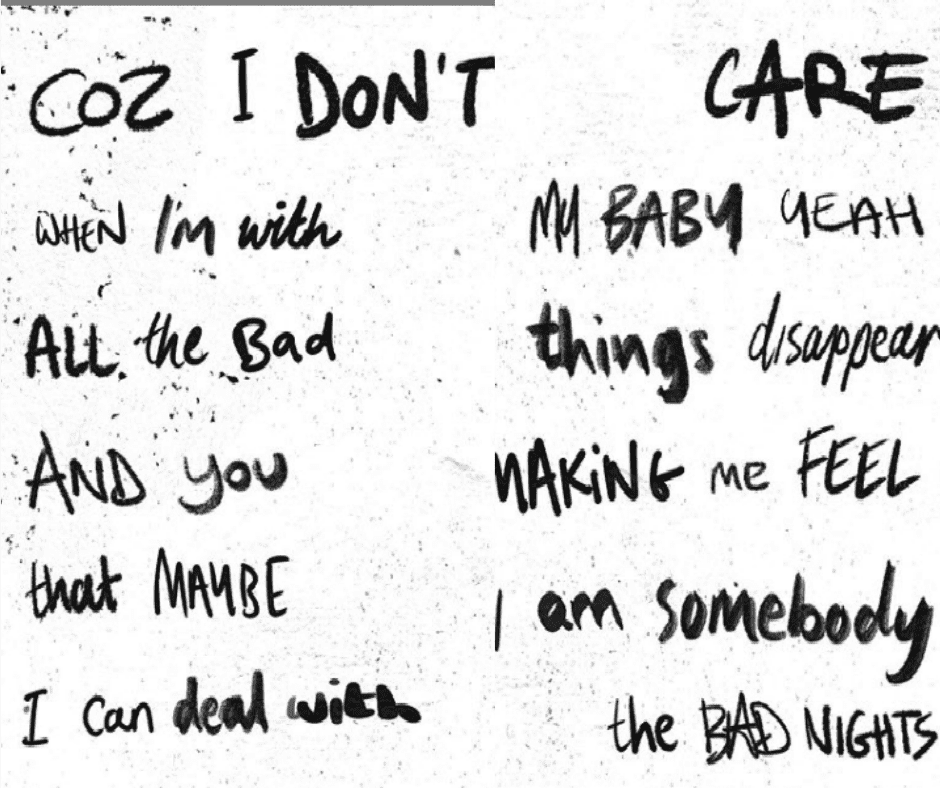 COZ I DON'T CARE
WHEN I'm with MY BABY YEAH
ALL the Bad things disappear
AND you MAKING me FEEL
that MAYBE I am somebody
I can deal with the BAD NIGHTS